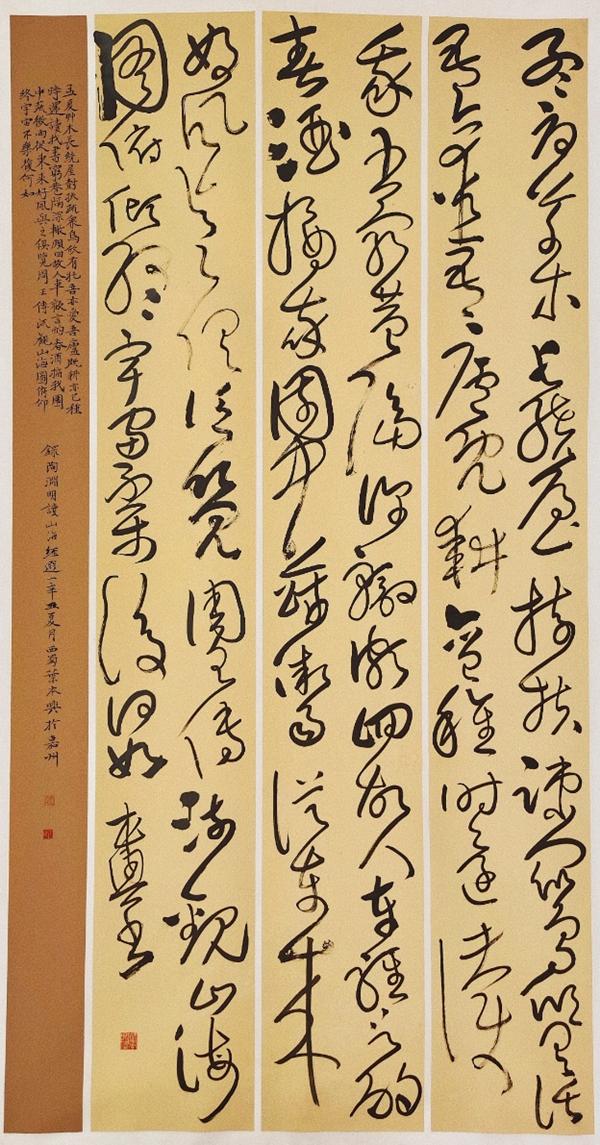 孟夏草木長繞屋樹扶疏眾鳥欣有託
吾亦愛吾廬既耕亦已種時還讀
我書窮巷隔深轍頗回故人車歡言酌
春酒摘我園中蔬微雨從東來
好風與之俱泛覽周王傳流觀山海
圖俯仰終宇宙不樂復何如 本興書
孟夏艸木長繞屋樹扶疏衆鳥欣有託吾亦愛吾廬既耕亦已種
時還讀我書窮巷隔深轍頗回故人車歡言酌春酒摘我園
中蔬微雨從東來好風與之俱覽周王傳流觀山海圖俯仰
終宇宙不樂復何如
錄陶淵明讀山海經選一辛丑夏月西蜀葉本興於嘉州